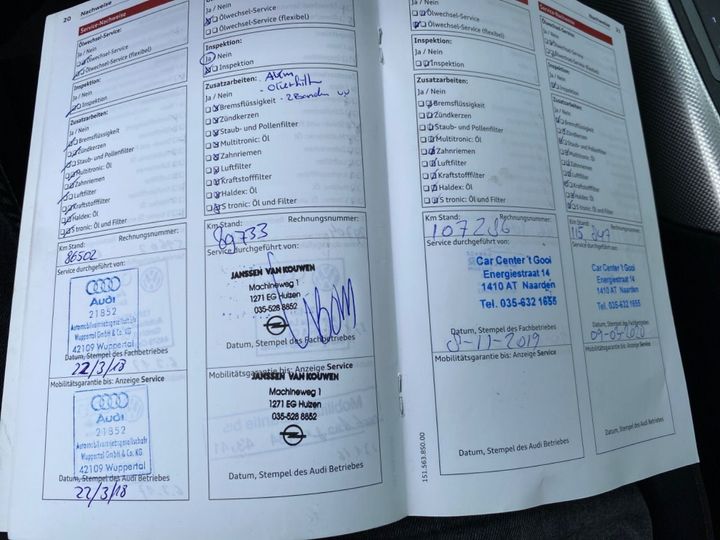 20 Nachweise
Service-Nachweise
Ölwechsel-Service:
Ja / Nein
Ölwechsel-Service
Ölwechsel-Service (flexibel)
Inspektion:
Ja / Nein
Inspektion
Zusatzarbeiten:
Ja / Nein
Bremsflüssigkeit
Zündkerzen
Staub- und Pollenfilter
Multitronic: Öl
Zahnriemen
Luftfilter
Kraftstofffilter
Haldex: Öl
S tronic: Öl und Filter
Km Stand: Rechnungsnummer:
86502
Service durchgeführt von:
Audi
21852
Automobilvertriebsgesellschaft
Wuppertal GmbH & Co. KG
42109 Wuppertal
Datum, Stempel des Fachbetriebes
22/3/18
Audi
21852
Automobilvertriebsgesellschaft
Wuppertal GmbH & Co. KG
42109 Wuppertal
Datum, Stempel des Audi Betriebes
22/3/18
Ölwechsel-Service
Ölwechsel-Service (flexibel)
Inspektion:
Ja / Nein
Inspektion
Zusatzarbeiten:
Ja / Nein
Bremsflüssigkeit
Zündkerzen
Staub- und Pollenfilter
Multitronic: Öl
Zahnriemen
Luftfilter
Kraftstofffilter
Haldex: Öl
S tronic: Öl und Filter
Km Stand: Rechnungsnummer:
89733
Service durchgeführt von:
JANSSEN VAN KOUWEN
Machineweg 1
1271 EG Huizen
035-528 8852
Datum, Stempel des Fachbetriebes
Mobilitätsgarantie bis: Anzeige Service
JANSSEN VAN KOUWEN
Machineweg 1
1271 EG Huizen
035-528 8852
Datum, Stempel des Audi Betriebes
Ölwechsel-Service
Ölwechsel-Service (flexibel)
Inspektion:
Ja / Nein
Inspektion
Zusatzarbeiten:
Ja / Nein
Bremsflüssigkeit
Zündkerzen
Staub- und Pollenfilter
Multitronic: Öl
Zahnriemen
Luftfilter
Kraftstofffilter
Haldex: Öl
S tronic: Öl und Filter
Km Stand: Rechnungsnummer:
107286
Service durchgeführt von:
Car Center 't Gooi
Energiestraat 14
1410 AT Naarden
Tel. 035-632 1655
Datum, Stempel des Fachbetriebes
8-11-2019
Mobilitätsgarantie bis: Anzeige Service
Datum, Stempel des Audi Betriebes
151.563.850.00
Nachweise 21
Service-Nachweise
Ölwechsel-Service:
Ja / Nein
Ölwechsel-Service
Ölwechsel-Service (flexibel)
Inspektion:
Ja / Nein
Inspektion
Zusatzarbeiten:
Ja / Nein
Bremsflüssigkeit
Zündkerzen
Staub- und Pollenfilter
Multitronic: Öl
Zahnriemen
Luftfilter
Kraftstofffilter
Haldex: Öl
S tronic: Öl und Filter
Km Stand: Rechnungsnummer:
Service durchgeführt von:
Car Center 't Gooi
Energiestraat 14
1410 AT Naarden
Tel. 035-632 1655
Datum, Stempel des Fachbetriebes
Mobilitätsgarantie bis: Anzeige Service
Datum, Stempel des Audi Betriebes